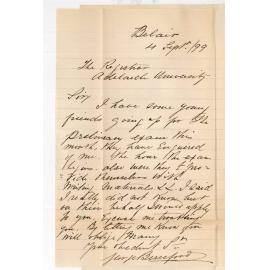 Belair
4 Sept./99
The Registrar
Adelaide University
Sir,
I have some young
friends going up for the
Preliminary exam this
month, they have enquired
of me. The hour the exam
begins. also were they to pro-
vide themselves with
Writing Material &c. I said
I really did not know but
I should apply
to you. Excuse me troubling
you. By letting me know you
will oblige
Your obedient S
Geo. Beresford